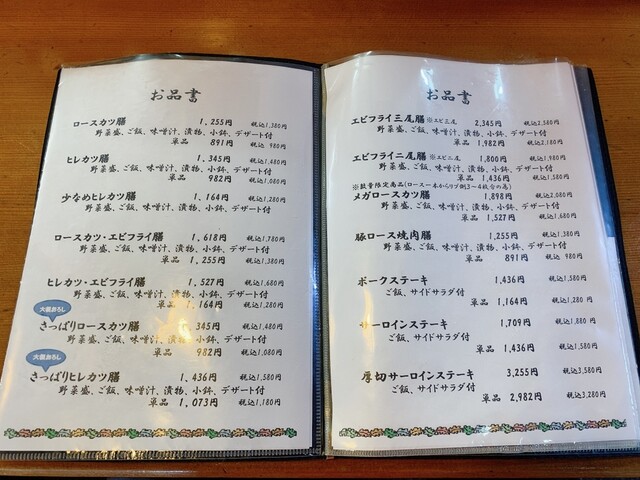 お品書
ロースカツ膳 1,255円 税込1,380円
野菜盛、ご飯、味噌汁、漬物、小鉢、デザート付
単品 891円 税込 980円
ヒレカツ膳 1,345円 税込1,480円
野菜盛、ご飯、味噌汁、漬物、小鉢、デザート付
単品 982円 税込1,080円
少なめヒレカツ膳 1,164円 税込1,280円
野菜盛、ご飯、味噌汁、漬物、小鉢、デザート付
ロースカツ・エビフライ膳 1,618円 税込1,780円
野菜盛、ご飯、味噌汁、漬物、小鉢、デザート付
単品 1,255円 税込1,380円
ヒレカツ・エビフライ膳 1,527円 税込1,680円
野菜盛、ご飯、味噌汁、漬物、小鉢、デザート付
単品 1,164円 税込1,280円
大根おろし
さっぱりロースカツ膳 345円 税込1,480円
野菜盛、ご飯、味噌汁、漬物、小鉢、デザート付
単品 982円 税込1,080円
大根おろし
さっぱりヒレカツ膳 1,436円 税込1,580円
野菜盛、ご飯、味噌汁、漬物、小鉢、デザート付
単品 1,073円 税込1,180円
お品書
エビフライ三尾膳 ※エビ三尾 2,345円 税込2,580円
野菜盛、ご飯、味噌汁、漬物、小鉢、デザート付
単品 1,982円 税込2,180円
エビフライ二尾膳 ※エビ二尾 1,800円 税込1,980円
野菜盛、ご飯、味噌汁、漬物、小鉢、デザート付
単品 1,436円 税込1,580円
※数量限定商品(ロース一本からリブ側3〜4枚分の為)
メガロースカツ膳 1,898円 税込2,080円
野菜盛、ご飯、味噌汁、漬物、小鉢、デザート付
単品 1,527円 税込1,680円
豚ロース焼肉膳 1,255円 税込1,380円
野菜盛、ご飯、味噌汁、漬物、小鉢、デザート付
単品 891円 税込 980円
ポークステーキ 1,436円 税込1,580円
ご飯、サイドサラダ付
単品 1,164円 税込1,280円
サーロインステーキ 1,709円 税込1,880円
ご飯、サイドサラダ付
単品 1,436円 税込1,580円
厚切サーロインステーキ 3,255円 税込3,580円
ご飯、サイドサラダ付
単品 2,982円 税込3,280円